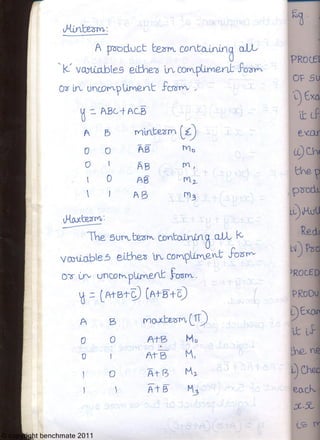 Minterm:
A product term containing all
'K' variables either in compliment form
or in uncompliment form.
y = ABC + ACB̅
A B minterm (Σ)
0 0 A̅B̅ m₀
0 1 A̅B m₁
1 0 AB̅ m₂
1 1 AB m₃
Maxterm:
The sum term containing all k
variables either in compliment form
or in uncompliment form.
y = (A+B+C̅) (A+B̅+C̅)
A B maxterm (π)
0 0 A+B M₀
0 1 A+B̅ M₁
1 0 A̅+B M₂
1 1 A̅+B̅ M₃
benchmate 2011
Eg
PROCE
OF SU
i) Exa
it if
the p
ii) Mul
Red
PROCED
PRODU
i) Exa
it if
each